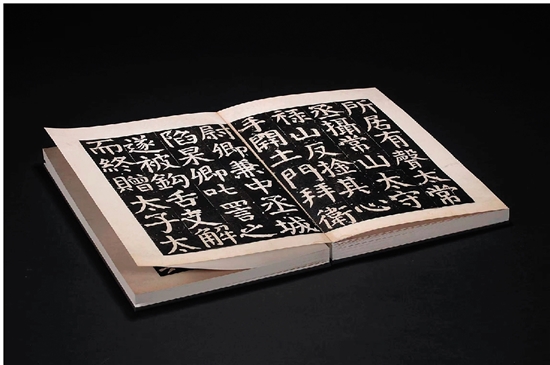 所居有聲大常
丞攝常山太守
祿山反捦其心
手開土門拜衛
尉卿兼中丞城
陷杲卿叱詈之
遂被鈎舌支解
而終贈太子太